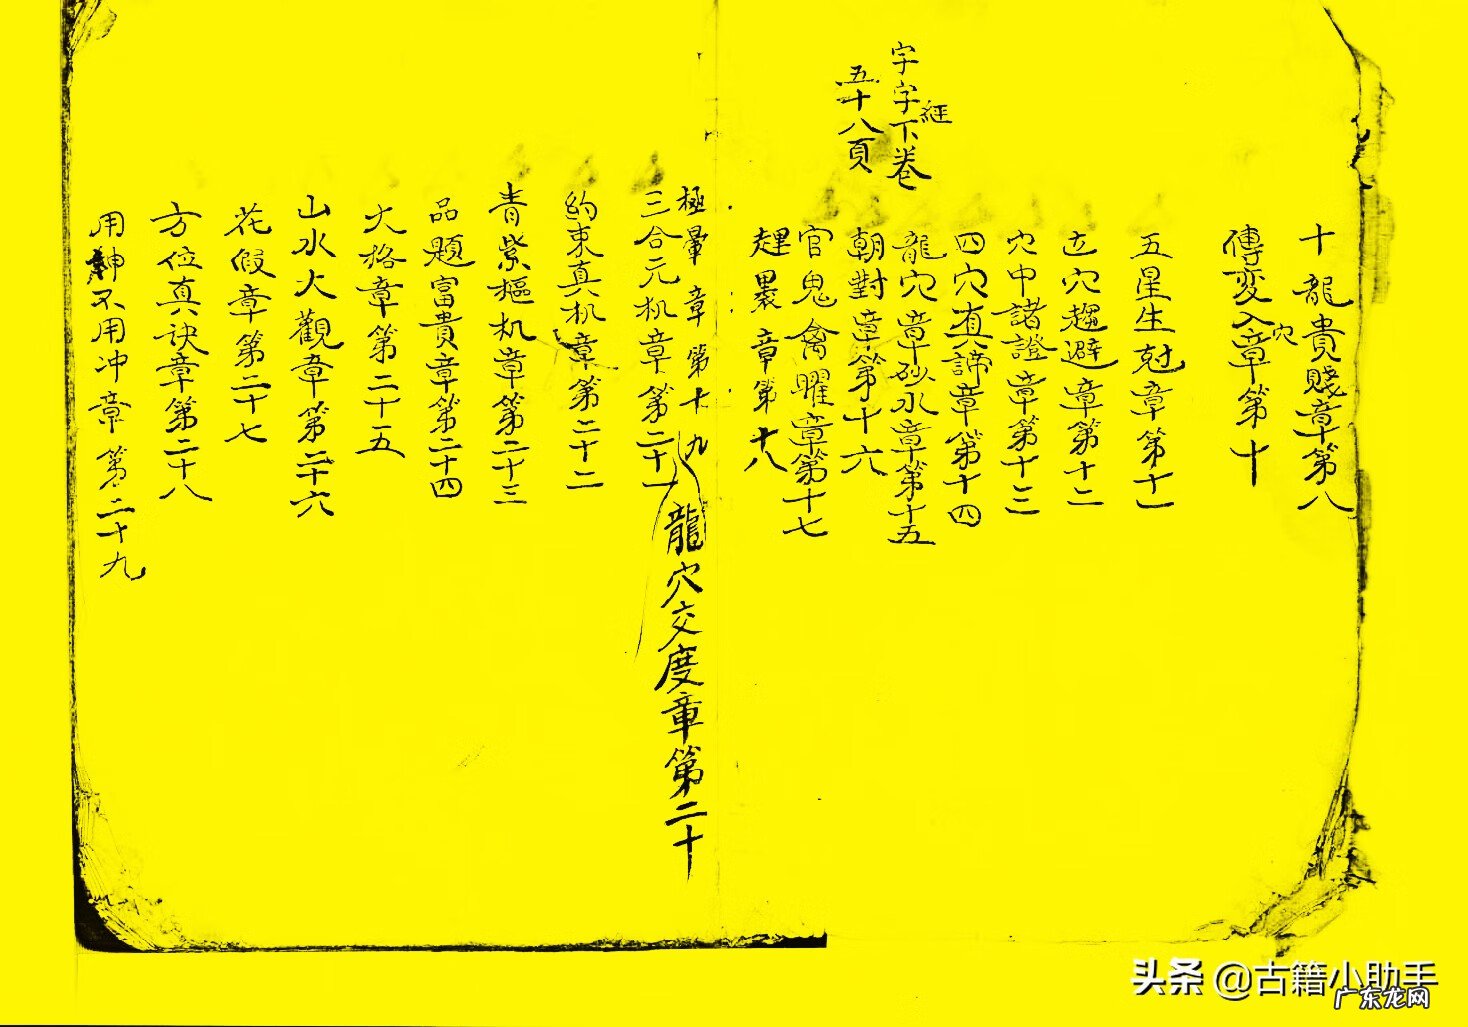 十龍貴賤章第八
傳変入穴章第十
五星生尅章第十一
立穴趨避章第十二
穴中諸證章第十三
四穴真諦章第十四
字字經下卷
五十八頁
龍穴章砂水章第十五
朝對章第十六
官鬼禽曜章第十七
裡暴章第十八
極暈章第十九
龍穴交度章第二十
三合元机章第二十一
約束真机章第二十二
青紫樞机章第二十三
品題富貴章第二十四
大格章第二十五
山水大觀章第二十六
花假章第二十七
方位真诀章第二十八
用神不用冲章第二十九
头条 @古籍小助手
广东龙网